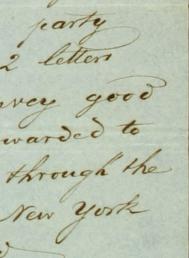 party
2 letters
vey good
warded to
through the
New York